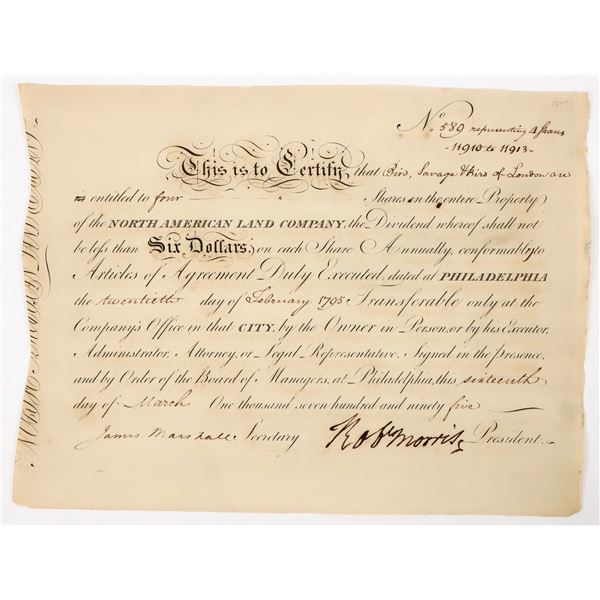 No. 589 representing 4 Shares
11910 to 11913
This is to Certify, that Bird, Savage & Bird of London are
is entitled to four Shares in the entire Property
of the NORTH AMERICAN LAND COMPANY, the Dividend whereof shall not
be less than Six Dollars, on each Share Annually, conformably to
Articles of Agreement Duly Executed, dated at PHILADELPHIA
the twentieth day of February 1795 Transferable only at the
Company's Office in that CITY, by the Owner in Person, or by his Executor,
Administrator, Attorney, or Legal Representative. Signed in the presence,
and by Order of the Board of Managers, at Philadelphia, this sixteenth
day of March One thousand seven hundred and ninety five
James Marshall Secretary Robt Morris President